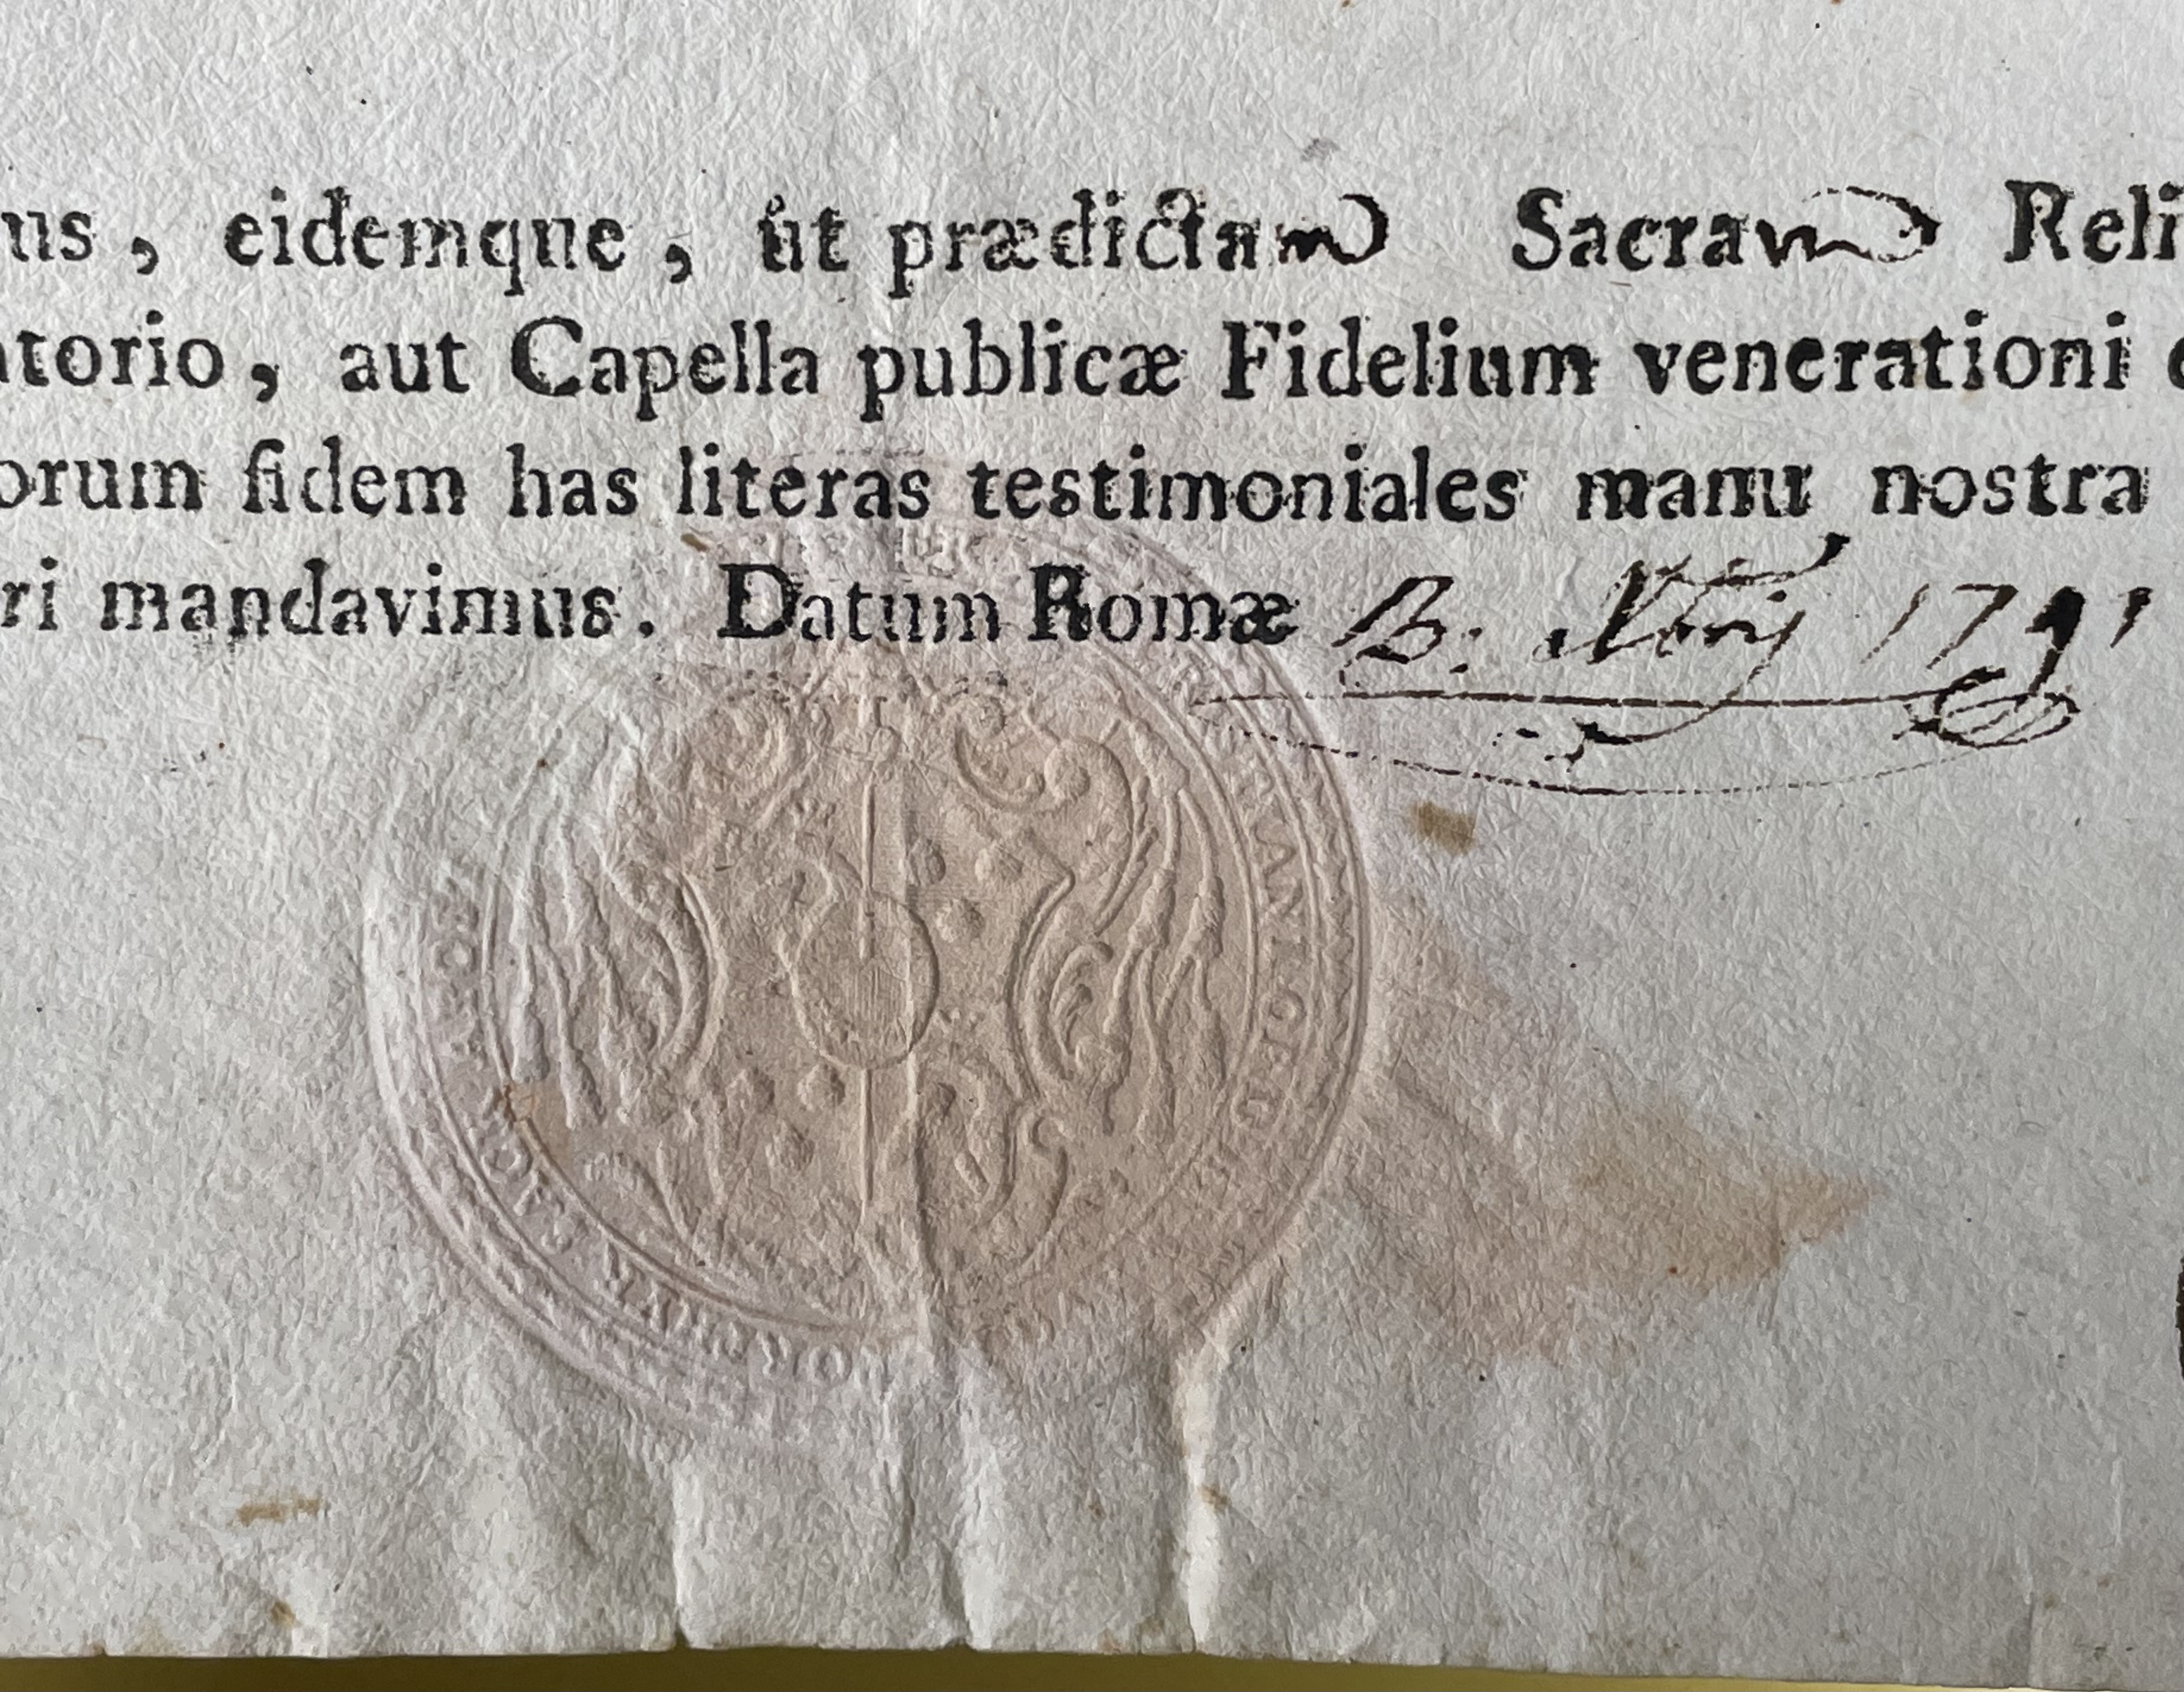 us, eidemque, ut prædictam Sacram Reli
atorio, aut Capella publicæ Fidelium venerationi
orum fidem has literas testimoniales manu nostra
ri mandavimus. Datum Romæ 1791